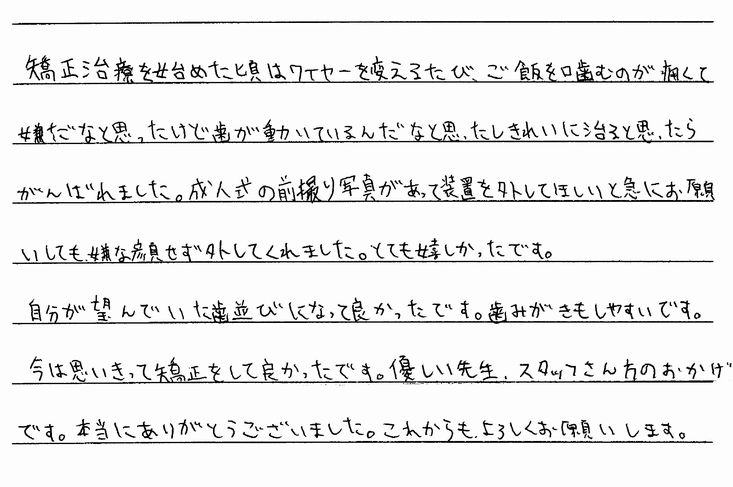 矯正治療を始めた頃はワイヤーを変えるたび、ご飯を噛むのが痛くて
嫌だなと思ったけど歯が動いているんだなと思ったしきれいに治ると思ったら
がんばれました。成人式の前撮り写真があって装置を外してほしいと急にお願
いしても、嫌な顔せず外してくれました。とても嬉しかったです。
自分が望んでいた歯並びになって良かったです。歯みがきもしやすいです。
今は思いきって矯正をして良かったです。優しい先生、スタッフさん方のおかげ
です。本当にありがとうございました。これからも、よろしくお願いします。